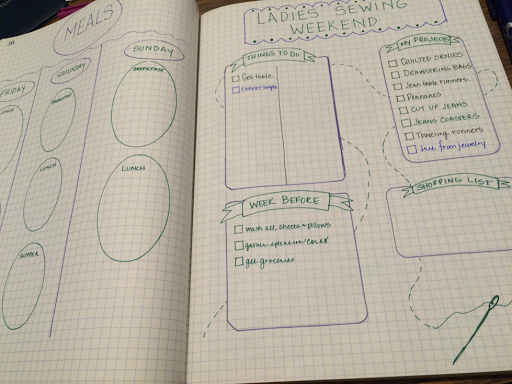 MEALS
FRIDAY
SATURDAY
SUNDAY
BREAKFAST
BREAKFAST
LUNCH
LUNCH
LUNCH
SUPPER
LADIES SEWING
WEEKEND
THINGS TO DO
Get table
WEEK BEFORE
wash all sheets & pillows
gather
get groceries
MY PROJECTS
QUILTED ORNIES
DRAWSTRING BAGS
Jean table runners
Pennants
CUT UP JEANS
JEANS COASTERS
runners
tree from jewelry
SHOPPING LIST